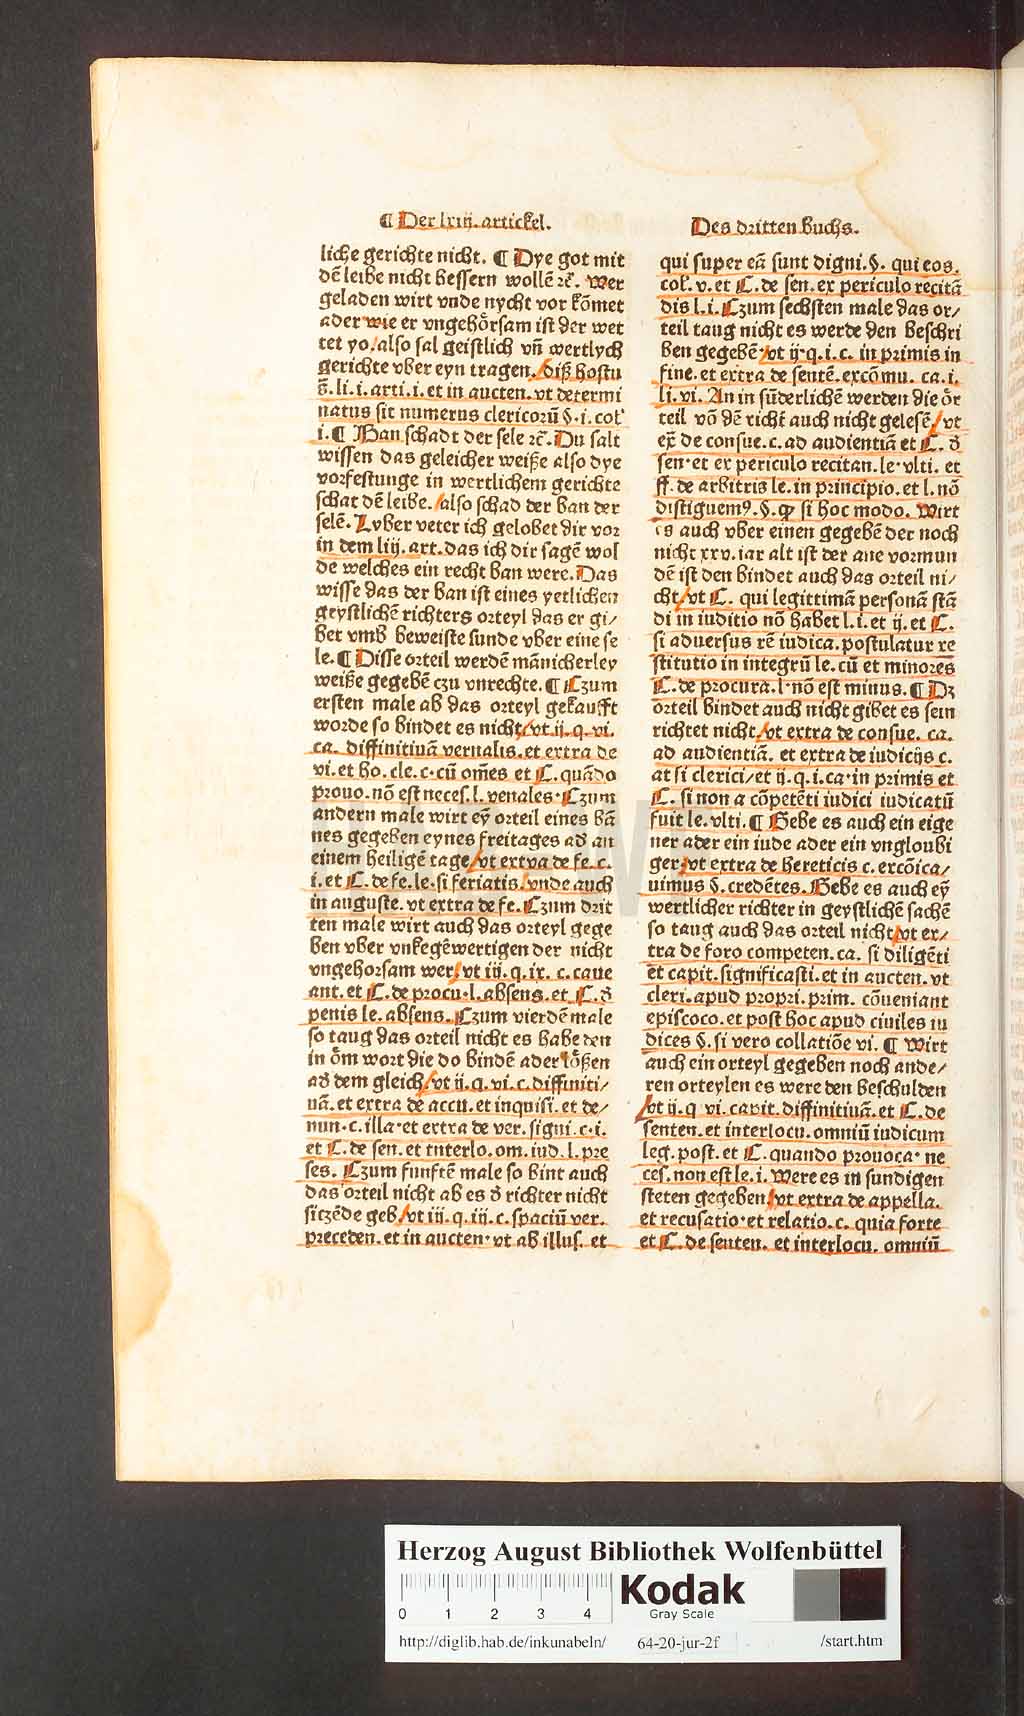 ¶ Der lxiij. artickel.
liche gerichte nicht. ¶ Dye got mit
dē leibe nicht bessern wollē ꝛc̄. Wer
geladen wirt vnde nycht vor kōmet
ader wie er vngehörsam ist der wet
tet yo/also sal geistlich vñ wertlych
gerichte vber eyn tragen./diß hostu
s̄. li. i. arti. i. et in aucten. vt determi
natus sit numerus clericorū §. i. col'
i. ¶ Ban schadt der sele ꝛc̄. Du salt
wissen das geleicher weiße also dye
vorfestunge in wertlichem gerichte
schat dē leibe./also schad der ban der
selē. Lyber veter ich gelobet dir vor
in dem liij. art. das ich dir sagē wol
de welches ein recht ban were. Das
wisse das der ban ist eines yetlichen
geystlichē richters orteyl das er gi/
bet vmb beweiste sunde vber eine se
le. ¶ Disse orteil werdē mānicherley
weiße gegebē czu vnrechte. ¶ Czum
ersten male ab das orteyl gekaufft
worde so bindet es nicht/vt ij. q. vi.
ca. diffinitiuā vernalis. et extra de
vi. et ho. cle. c. cū om̄es et C. quādo
prouo. nō est neces. l. venales. Czum
andern male wirt eȳ orteil eines bā
nes gegeben eynes freitages ad an
einem heiligē tage/vt extra de fe. c.
i. et C. de fe. le. si feriatis/vnde auch
in auguste. vt extra de fe. Czum drit
ten male wirt auch das orteyl gege
ben vber vnkegēwertigen der nicht
vngehorsam wer/vt iij. q. ix. c. caue
ant. et C. de procu. l. absens. et C. d̄
penis le. absens. Czum vierdē male
so taug das orteil nicht es habe den
in öm wort die do bindē ader lößen
ad dem gleich/vt ij. q. vi. c. diffiniti/
uā. et extra de accu. et inquisi. et de/
nun. c. illa. et extra de ver. signi. c. i.
et C. de sen. et interlo. om. iud. l. pre
ses. Czum funftē male so bint auch
das orteil nicht ab es d̄ richter nicht
siczēde geb/vt iij. q. iij. c. spaciū ver.
preceden. et in aucten. vt ab illus. et
Des dritten buchs.
qui super eā sunt digni. §. qui eos.
col'. v. et C. de sen. ex periculo recitā
dis l. i. Czum sechsten male das or/
teil taug nicht es werde den beschri
ben gegebē/vt ij. q. i. c. in primis in
fine. et extra de sentē. excōmu. ca. i.
li. vi. An in sūderlichē werden die ör
teil vō dē richt auch nicht gelesē/vt
ex̄ de consue. c. ad audientiā et C. d̄
sen. et ex periculo recitan. le. vlti. et
ff. de arbitris le. in principio. et l. nō
distiguemꝰ. §. ꝙ si hoc modo. Wirt
es auch vber einen gegebē der noch
nicht xxv. iar alt ist der ane vormun
dē ist den bindet auch das orteil ni/
cht/vt C. qui legittimā personā stā
di in iuditio nō habet l. i. et ij. et C.
si aduersus rē iudica. postulatur re
stitutio in integrū le. cū et minores
C. de procura. l. nō est minus. ¶ Dz
orteil bindet auch nicht gibet es sein
richtet nicht/vt extra de consue. ca.
ad audientiā. et extra de iudicijs c.
at si clerici/et ij. q. i. ca. in primis et
C. si non a cōpetēti iudici iudicatū
fuit le. vlti. ¶ Gebe es auch ein eige
ner ader ein iude ader ein vngloubi
ger/vt extra de hereticis c. excōica/
uimus §. credētes. Gebe es auch eȳ
wertlicher richter in geystlichē sachē
so taug auch das orteil nicht/vt ex/
tra de foro competen. ca. si diligēti
et capit. significasti. et in aucten. vt
cleri. apud propri. prim. cōueniant
episcoco. et post hoc apud ciuiles iu
dices §. si vero collatiōe vi. ¶ Wirt
auch ein orteyl gegeben noch ande/
ren orteylen es were den beschulden
/vt ij. q vi. capit. diffinitiuā. et C. de
senten. et interlocu. omniū iudicum
leg. post. et C. quando prouoca. ne
ces. non est le. i. Were es in sundigen
steten gegeben/vt extra de appella.
et recusatio. et relatio. c. quia forte
et C. de senten. et interlocu. omniū
HAB-WF
Herzog August Bibliothek Wolfenbüttel
0 1 2 3 4
Kodak
Gray Scale
http://diglib.hab.de/inkunabeln/ 64-20-jur-2f /start.htm